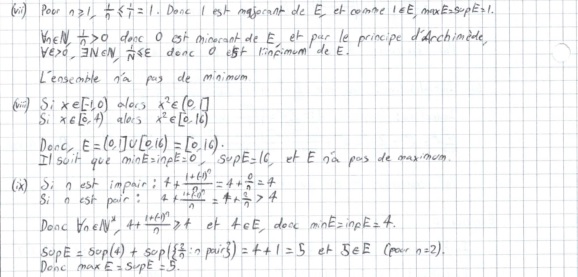 (vii) Pour n≥1, 1/n ≤ 1/1 = 1. Donc 1 est majorant de E, et comme 1∈E, maxE=supE=1.
∀n∈ℕ, 1/n > 0 donc 0 est minorant de E, et par le principe d'Archimède,
∀ε>0, ∃N∈ℕ, 1/N ≤ ε donc 0 est l'infimum de E.
L'ensemble n'a pas de minimum
(viii) Si x∈[-1,0) alors x²∈(0,1]
Si x∈[0,4) alors x²∈[0,16)
Donc, E=(0,1]∪[0,16) = [0,16).
Il suit que minE=infE=0, supE=16, et E n'a pas de maximum.
(ix) Si n est impair : 4+(1+(-1)ⁿ)/n = 4+0/n = 4
Si n est pair : 4+(1+(-1)ⁿ)/n = 4+2/n > 4
Donc ∀n∈ℕ*, 4+(1+(-1)ⁿ)/n ≥ 4 et 4∈E, donc minE=infE=4.
supE = sup(4) + sup({2/n : n pair}) = 4+1 = 5 et 5∈E (pour n=2).
Donc maxE=supE=5.